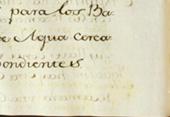 para los Ba-
e Agua cerca
pondientes